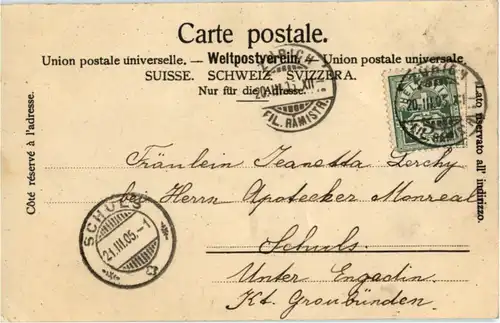 Carte postale.
Union postale universelle. — Weltpostverein. — Union postale universale.
SUISSE. SCHWEIZ. SVIZZERA.
Nur für die Adresse.
Côté réservé à l'adresse.
Lato riservato all' indirizzo.
ZÜRICH
20.III.05.XII
FIL. RÄMISTR.
HELVETIA
ZÜRICH
20.III.05.XI
FIL. RÄMISTR.
Fräulein Jeanetta Lerchy
bei Herrn Apotecker Monreal
Schuls.
Unter Engadin
Kt. Graubünden
SCHULS
21.III.05.-1